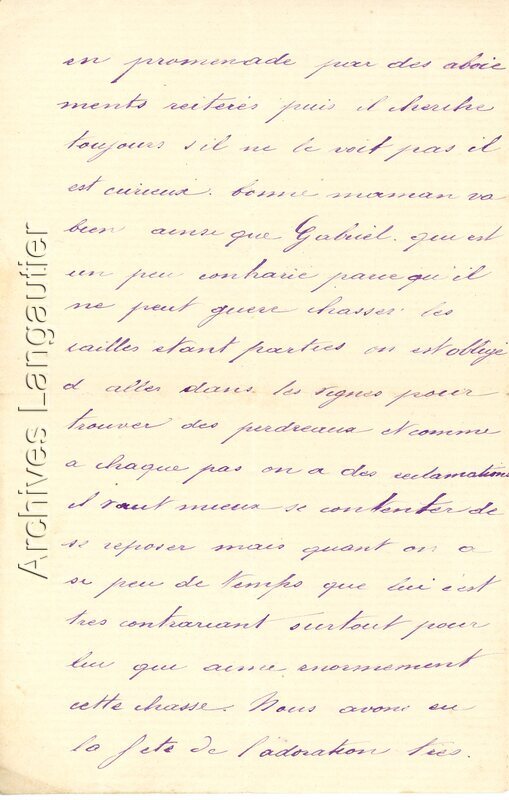 en promenade par des aboie
ments reiterés puis il cherche
toujours s'il ne le voit pas il
est curieux. bonne maman va
bien ainsi que Gabriel. qui est
un peu contrarié parce qu'il
ne peut guere chasser les
cailles etant parties on est obligé
d aller dans les vignes pour
trouver des perdreaux et comme
a chaque pas on a des reclamations
il vaut mieux se contenter de
se reposer mais quant on a
si peu de temps que lui c'est
tres contrariant surtout pour
lui qui aime enormement
cette chasse. Nous avons eu
la fete de l'adoration tres.
Archives Langautier